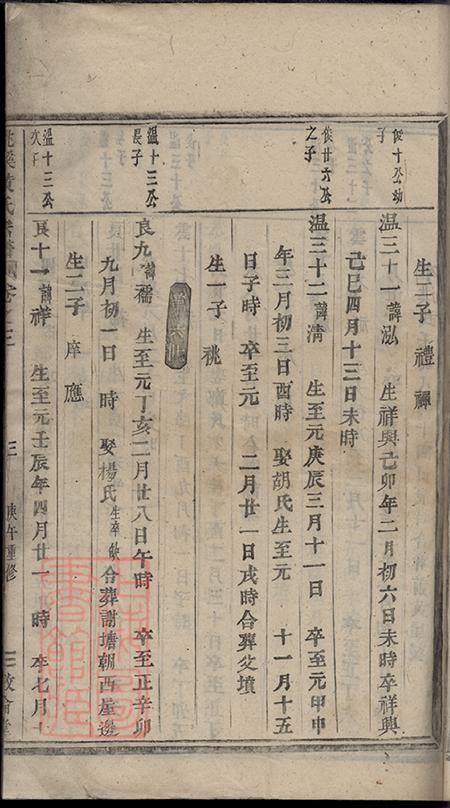 生二子禮禪
俊十公幼
温三十一諱泓 生祥興己卯年二月初六日未時卒祥興
己巳四月十三日未時
俊廿六公之子
温三十二諱淸 生至元庚辰三月十一日 卒至元甲申
年三月初三日酉時 娶胡氏生至元 十一月十五
日子時 卒至元 二月廿一日戌時合葬父墳
生一子 祧
温十三公長子
良九諱襦 生至元丁亥二月廿八日午時 卒至正辛卯
九月初一日 時 娶楊氏生卒缺合葬謝塘朝西屋邊
生二子 庠應
温十三公次子
良十一諱祥 生至元壬辰年四月廿一 時 卒七月
三 庚午重修